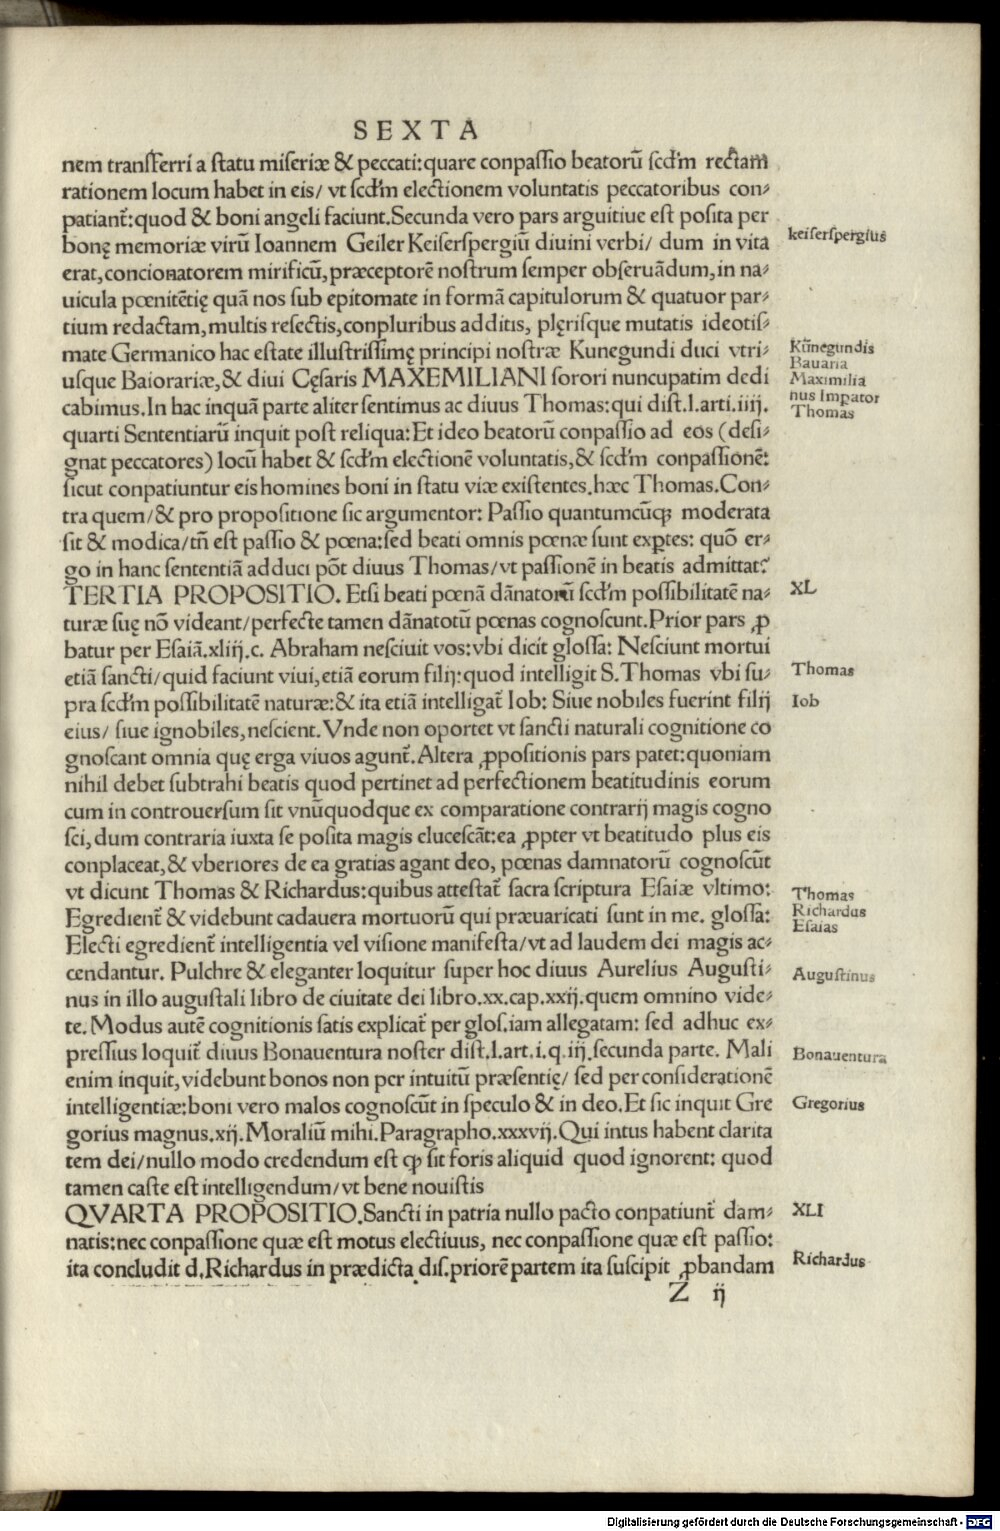 SEXTA
nem transferri a statu miseriæ & peccati:quare conpassio beatorū scd'm rectam
rationem locum habet in eis/ vt scd'm electionem voluntatis peccatoribus con⸗
patiant᷑:quod & boni angeli faciunt.Secunda vero pars arguitiue est posita per
bonę memoriæ virū Ioannem Geiler Keiserspergiū diuini verbi/ dum in vita
keiserspergius
erat,concionatorem mirificū,præceptorē nostrum semper obseruādum,in na⸗
uicula pœnitētię quā nos sub epitomate in formā capitulorum & quatuor par⸗
tium redactam,multis resectis,conpluribus additis, plęrisque mutatis ideotis⸗
mate Germanico hac estate illustrissimę principi nostræ Kunegundi duci vtri⸗
Kūnegundis
Bauaria
usque Baiorariæ,& diui Cęsaris MAXEMILIANI sorori nuncupatim dedi
Maximilia
nus Impator
cabimus.In hac inquā parte aliter sentimus ac diuus Thomas:qui dist.l.arti.iiij.
Thomas
quarti Sententiarū inquit post reliqua:Et ideo beatorū conpassio ad eos (desi⸗
gnat peccatores) locū habet & scd'm electionē voluntatis,& scd'm conpassionē:
sicut conpatiuntur eis homines boni in statu viæ existentes.hæc Thomas.Con⸗
tra quem/& pro propositione sic argumentor: Passio quantumcūqꝫ moderata
sit & modica/tn̄ est passio & pœna:sed beati omnis pœnæ sunt exꝑtes: quō er⸗
go in hanc sententiā adduci pōt diuus Thomas/vt passionē in beatis admittat?
TERTIA PROPOSITIO. Etsi beati pœnā dānatorū scd'm possibilitatē na⸗
XL
turæ suę nō videant/perfecte tamen dānatotū pœnas cognoscunt.Prior pars ꝓ
batur per Esaiā.xliij.c. Abraham nesciuit vos:vbi dicit glossa: Nesciunt mortui
etiā sancti/quid faciunt viui,etiā eorum filij:quod intelligit S.Thomas vbi su⸗
Thomas
pra scd'm possibilitatē naturæ:& ita etiā intelligat᷑ Iob: Siue nobiles fuerint filij
Iob
eius/ siue ignobiles,nescient.Vnde non oportet vt sancti naturali cognitione co
gnoscant omnia quę erga viuos agunt᷑.Altera ꝓpositionis pars patet:quoniam
nihil debet subtrahi beatis quod pertinet ad perfectionem beatitudinis eorum
cum in controuersum sit vnūquodque ex comparatione contrarij magis cogno
sci,dum contraria iuxta se posita magis elucescāt:ea ꝓpter vt beatitudo plus eis
conplaceat,& vberiores de ea gratias agant deo, pœnas damnatorū cognoscūt
vt dicunt Thomas & Richardus:quibus attestat᷑ sacra scriptura Esaiæ vltimo:
Thomas
Egredient᷑ & videbunt cadauera mortuorū qui præuaricati sunt in me. glossa:
Richardus
Esaias
Electi egredient᷑ intelligentia vel visione manifesta/vt ad laudem dei magis ac⸗
cendantur. Pulchre & eleganter loquitur super hoc diuus Aurelius Augusti⸗
Augustinus
nus in illo augustali libro de ciuitate dei libro.xx.cap.xxij.quem omnino vide⸗
te.Modus autē cognitionis satis explicat᷑ per glos.iam allegatam: sed adhuc ex⸗
pressius loquit᷑ diuus Bonauentura noster dist.l.art.i.q.iij.secunda parte. Mali
Bonauentura
enim inquit,videbunt bonos non per intuitū præsentię/ sed per considerationē
intelligentiæ:boni vero malos cognoscūt in speculo & in deo.Et sic inquit Gre
Gregorius
gorius magnus.xij.Moraliū mihi.Paragrapho.xxxvij.Qui intus habent clarita
tem dei/nullo modo credendum est ꝙ sit foris aliquid quod ignorent: quod
tamen caste est intelligendum/vt bene nouistis
QVARTA PROPOSITIO.Sancti in patria nullo pacto conpatiunt᷑ dam⸗
XLI
natis:nec conpassione quæ est motus electiuus, nec conpassione quæ est passio:
ita concludit d.Richardus in prædicta dis.priorē partem ita suscipit ꝓbandam
Richardus
Z ij
Digitalisierung gefördert durch die Deutsche Forschungsgemeinschaft - DFG